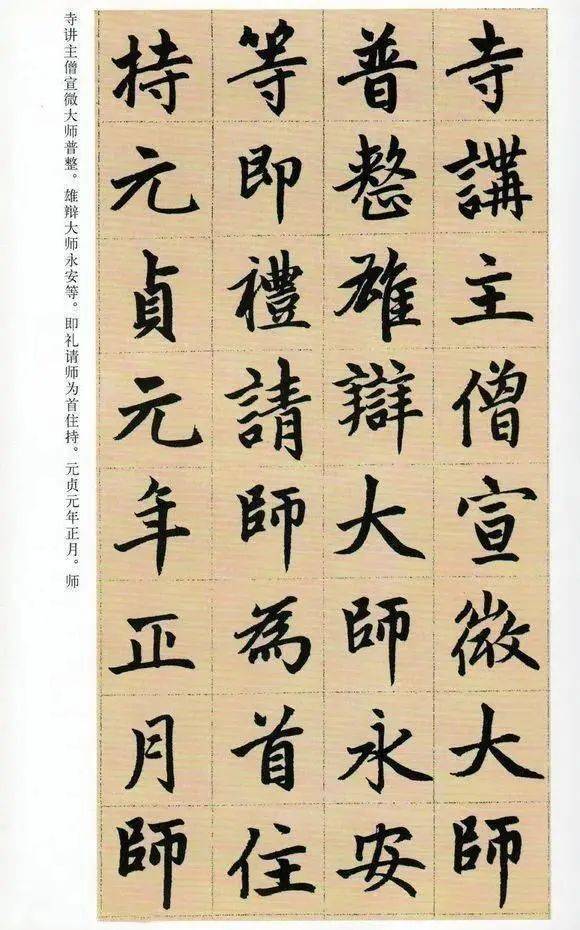 寺講主僧宣微大師
普整雄辯大師永安
等即禮請師為首住
持元貞元年正月師
寺讲主僧宣微大师普整。雄辩大师永安等。即礼请师为首住持。元贞元年正月。师